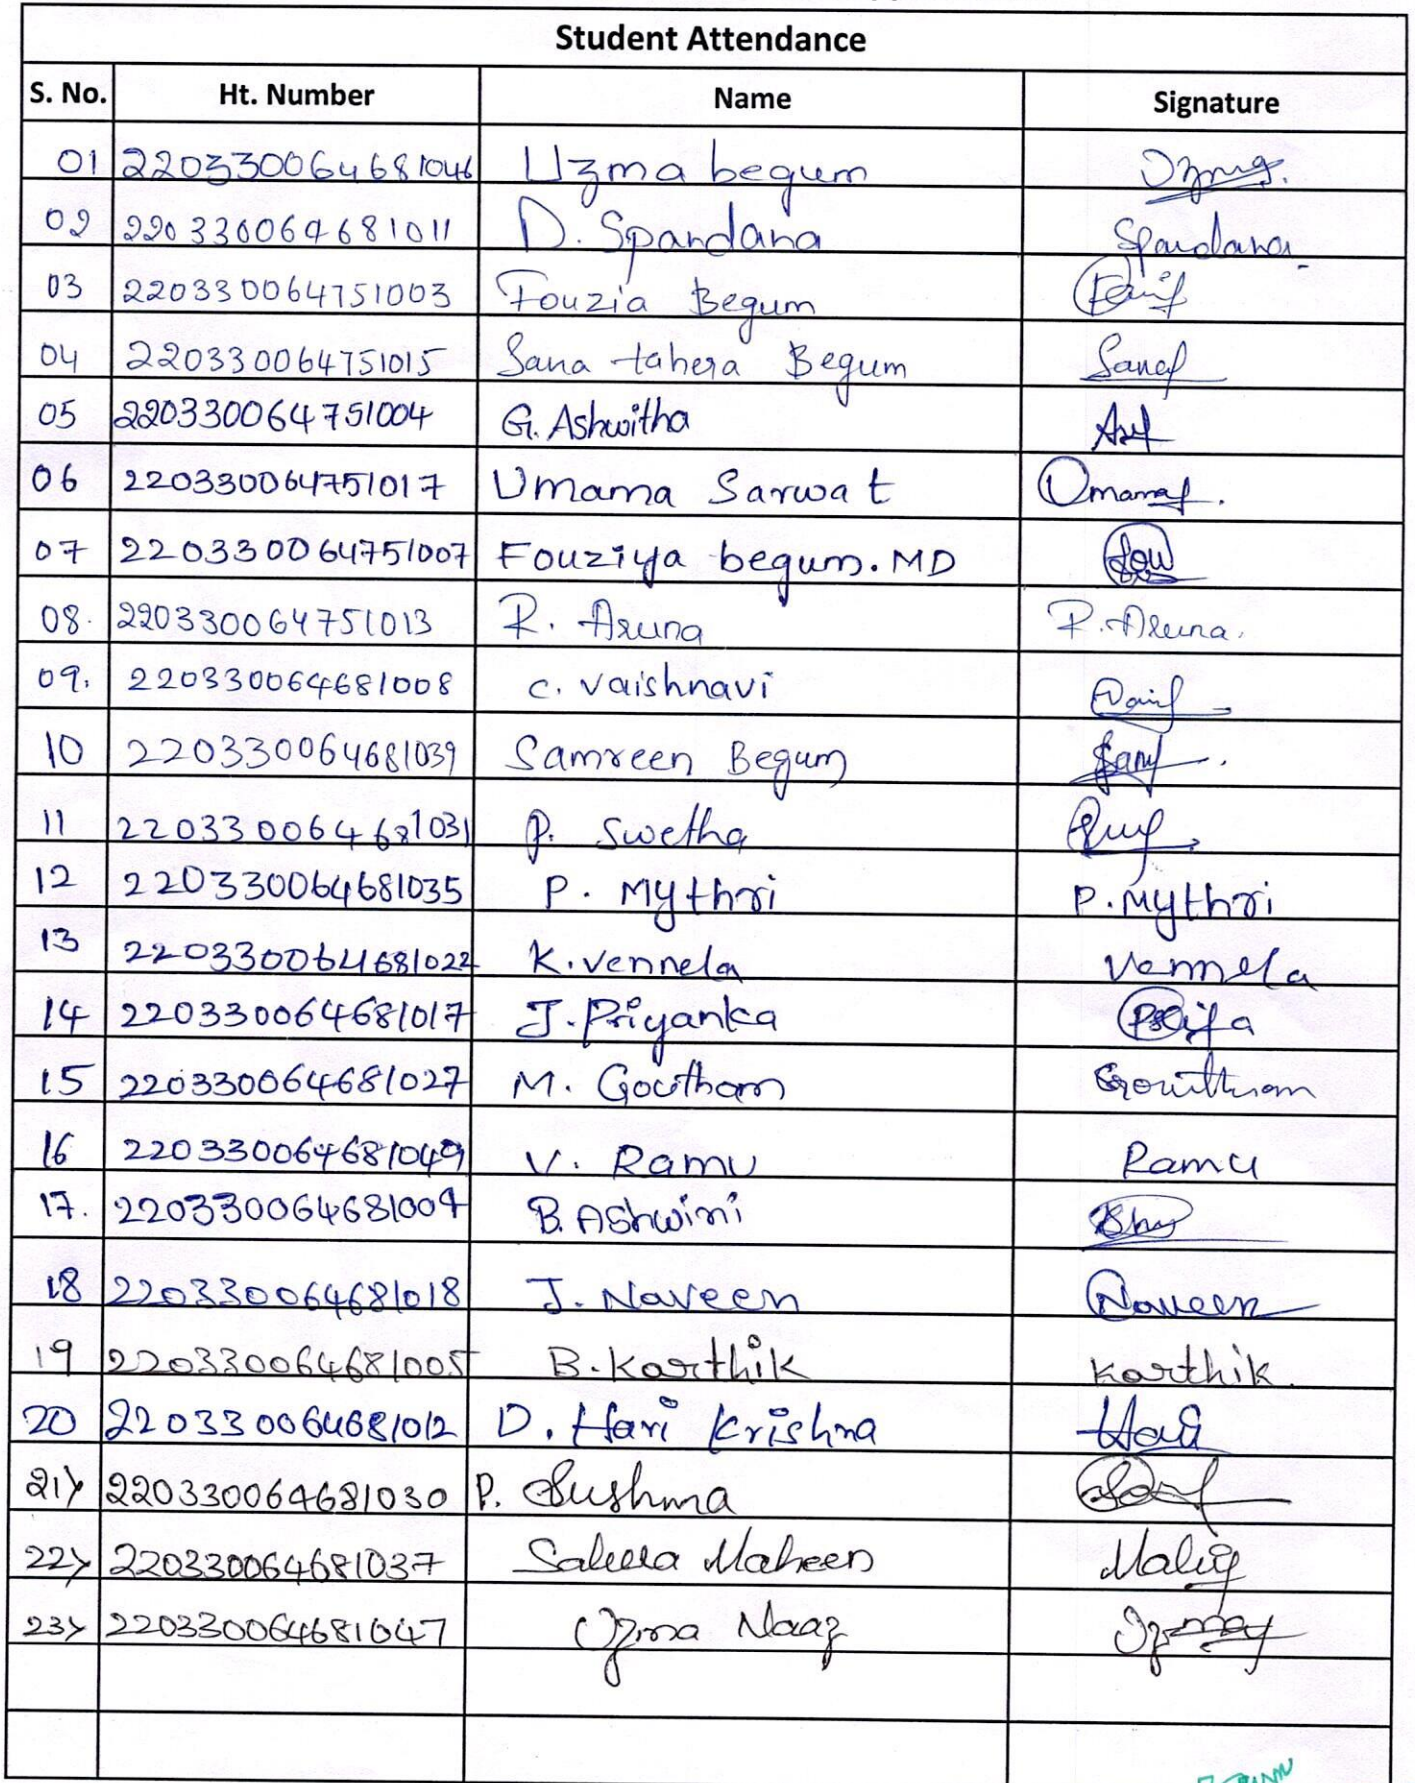 Student Attendance
S. No. Ht. Number Name Signature
01 220330064681046 Uzma begum
02 220330064681011 D. Spandana Spandana
03 220330064751003 Fouzia Begum
04 220330064751015 Sana tahera Begum
05 220330064751004 G. Ashwitha
06 220330064751017 Umama Sarwat
07 220330064751007 Fouziya begum. MD
08. 220330064751013 R. Aruna R. Aruna.
09. 220330064681008 C. Vaishnavi
10 220330064681039 Samreen Begum
11 220330064681031 P. Swetha
12 220330064681035 P. Mythri P. Mythri
13 220330064681022 K. Vennela Vennela
14 220330064681017 J. Priyanka
15 220330064681027 M. Goutham Goutham
16 220330064681049 V. Ramu Ramu
17. 220330064681004 B. Ashwini
18 220330064681018 J. Naveen Naveen
19 220330064681005 B. Karthik Karthik.
20 220330064681012 D. Hari Krishna Hari
21> 220330064681030 P. Sushma
22> 220330064681037 Maheen
23> 220330064681047 Uzma Naaz